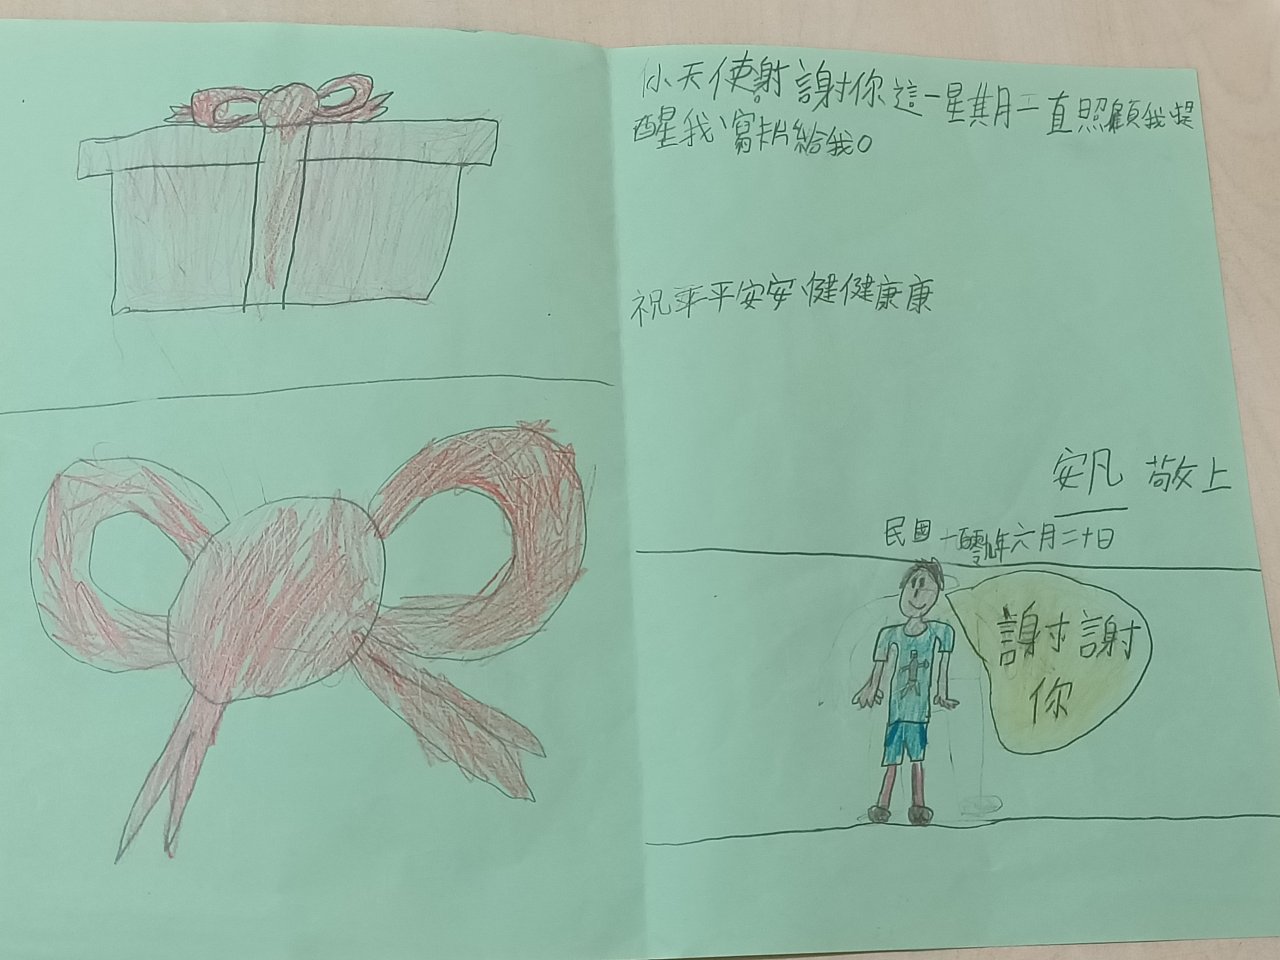 小天使謝謝你這一星期一直照顧我、提
醒我、寫卡片給我。
祝平平安安、健健康康
安凡 敬上
民國一百零九年六月二十日
謝謝
你